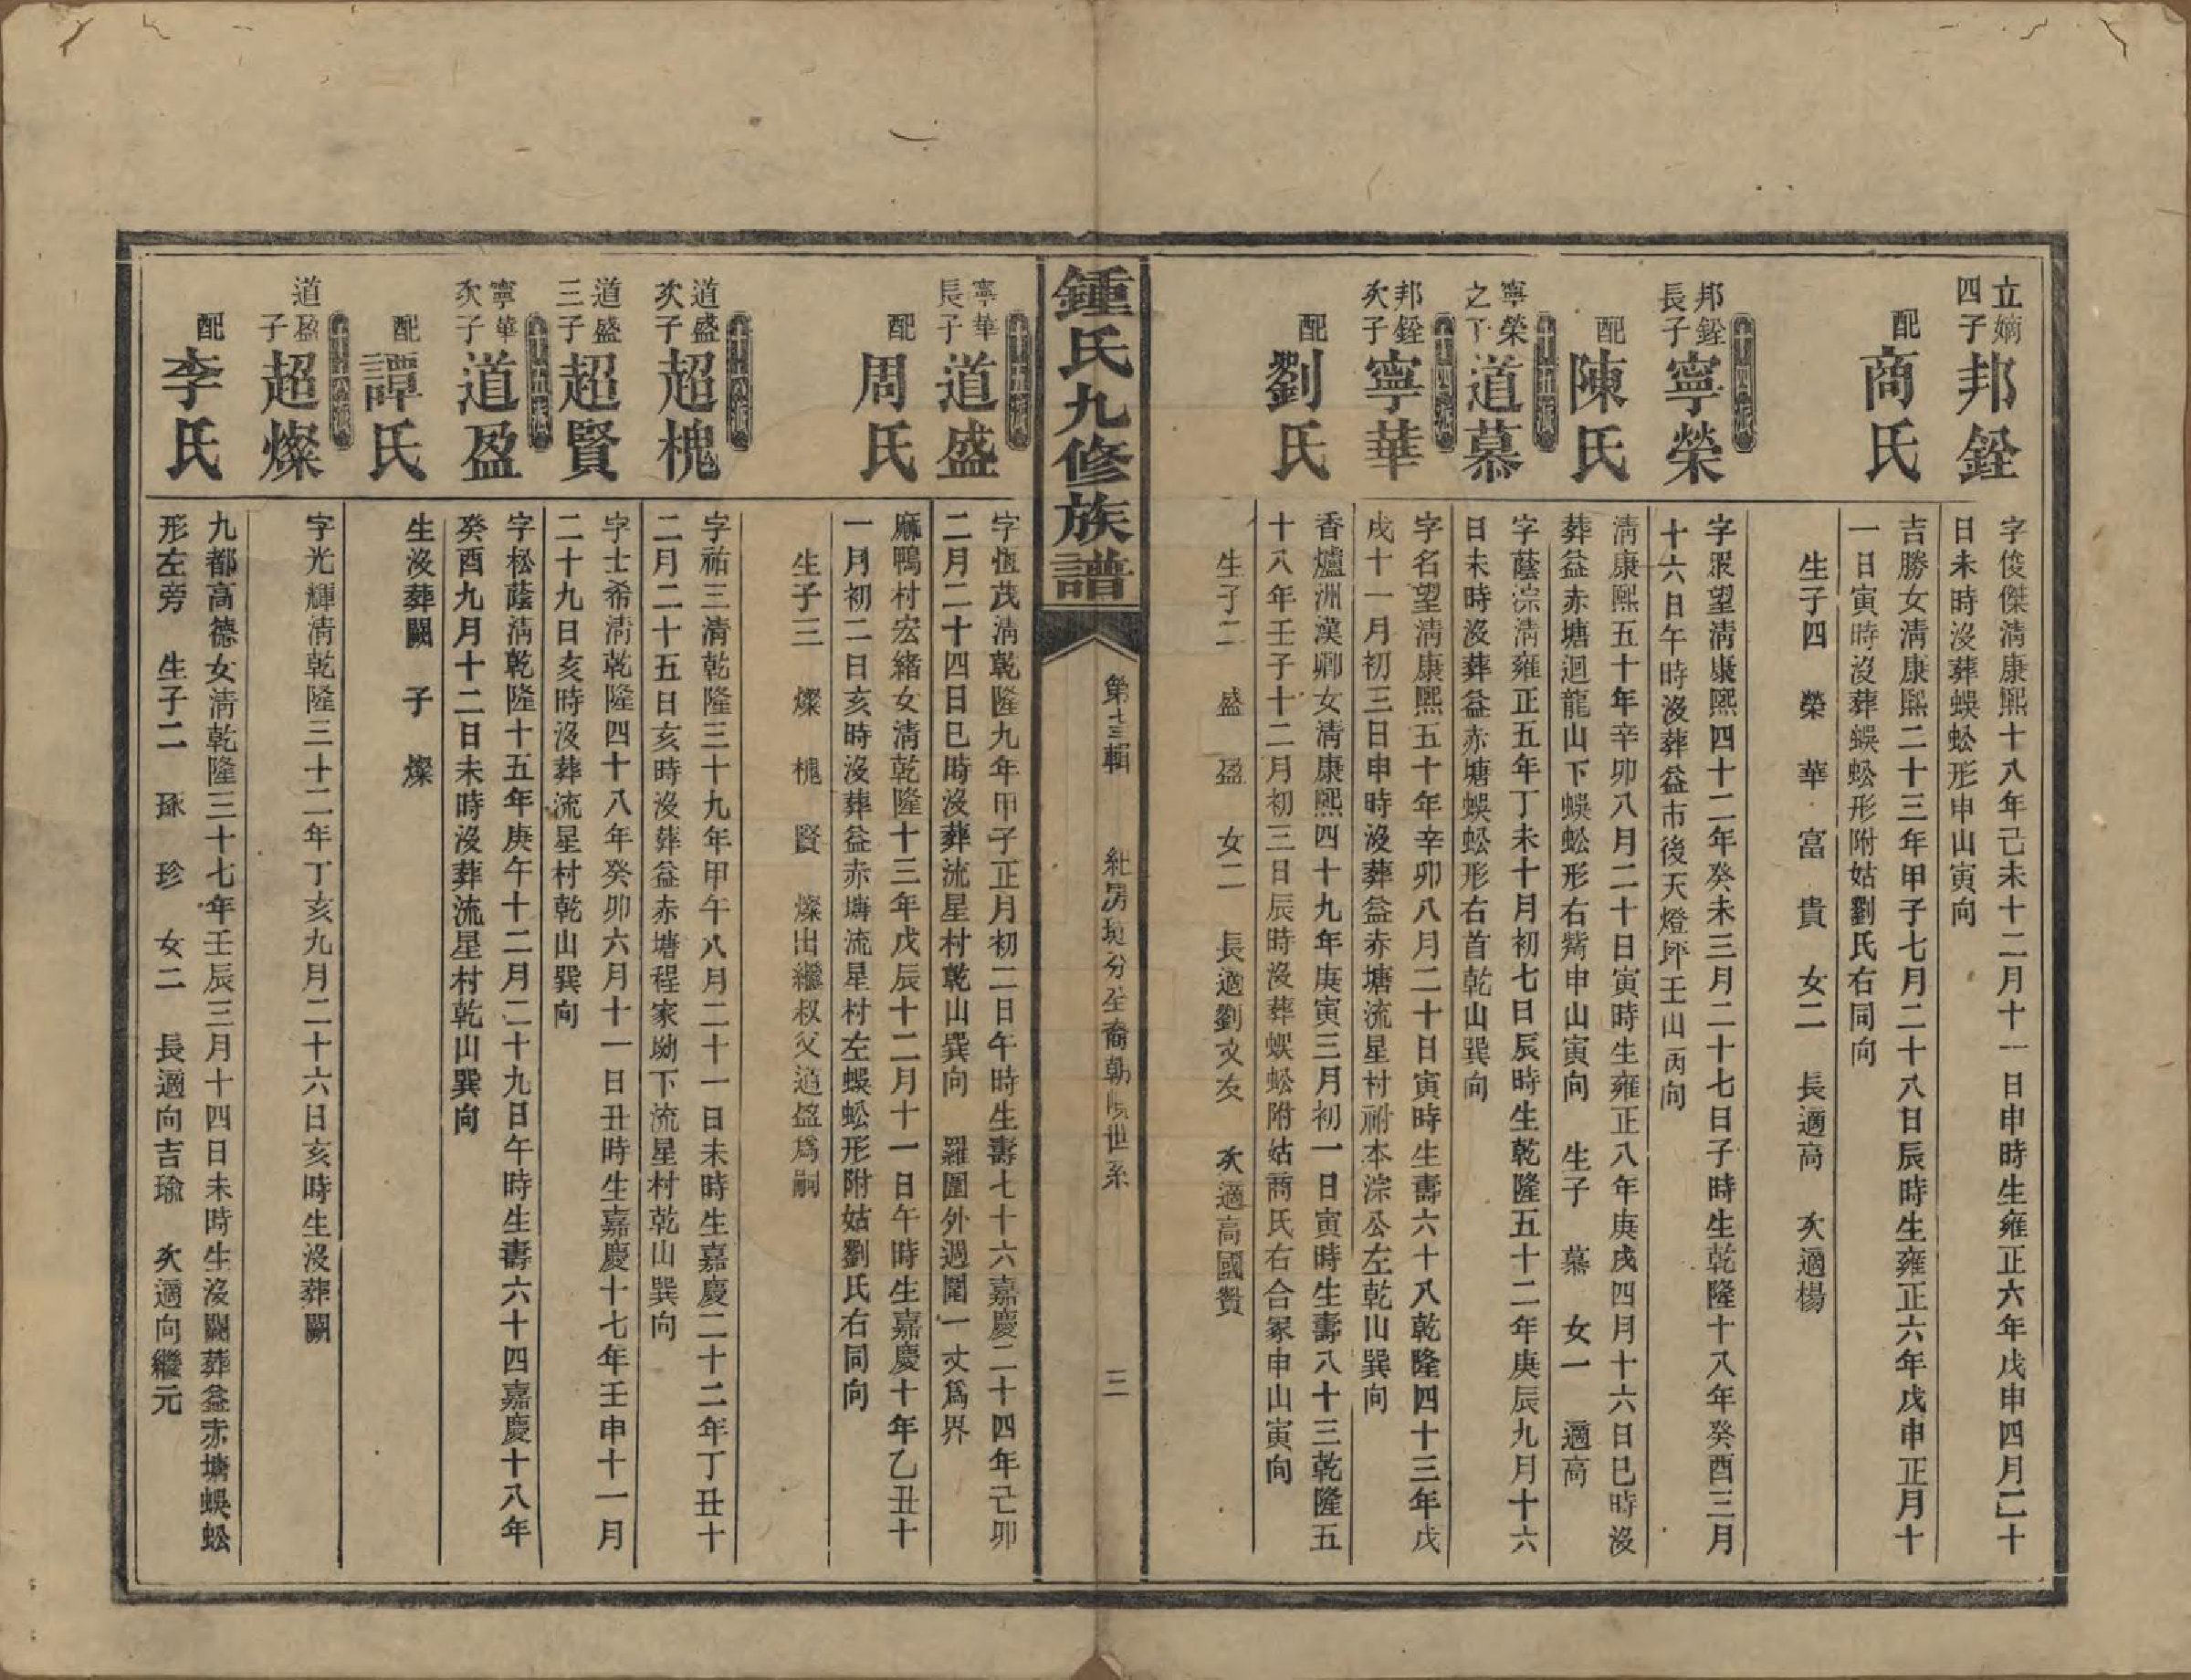 立嫡四子
邦銓
字俊傑清康熙十八年己未十二月十一日申時生雍正六年戊申四月二十
日未時沒葬蜈蚣形申山寅向
配
商氏
吉勝女清康熙二十三年甲子七月二十八日辰時生雍正六年戊申正月十
一日寅時沒葬蜈蚣形附姑劉氏右同向
生子四 榮 華 富 貴 女二 長適高 次適楊
邦銓長子
寧榮
字眾望清康熙四十二年癸未三月二十七日子時生乾隆十八年癸酉三月
十六日午時沒葬益市後天燈坪壬山丙向
配
陳氏
清康熙五十年辛卯八月二十日寅時生雍正八年庚戌四月十六日巳時沒
葬益赤塘迴龍山下蜈蚣形右觜申山寅向 生子 慕 女一 適高
寧榮之子
道慕
字蔭淙清雍正五年丁未十月初七日辰時生乾隆五十二年庚辰九月十六
日未時沒葬益赤塘蜈蚣形右首乾山巽向
邦銓次子
寧華
字名望清康熙五十年辛卯八月二十日寅時生壽六十八乾隆四十三年戊
戌十一月初三日申時沒葬益赤塘流星村祔本淙公左乾山巽向
配
劉氏
香爐洲漢卿女清康熙四十九年庚寅三月初一日寅時生壽八十三乾隆五
十八年壬子十二月初三日辰時沒葬蜈蚣附姑商氏右合冢申山寅向
生子二 盛 盈 女二 長適劉文友 次適高國贊
鍾氏九修族譜
第十三輯
世系
三
寧華長子
道盛
字恆茂清乾隆九年甲子正月初二日午時生壽七十六嘉慶二十四年己卯
二月二十四日巳時沒葬流星村乾山巽向 羅圍外過圍一丈爲界
配
周氏
麻鴨村宏緒女清乾隆十三年戊辰十二月十一日午時生嘉慶十年乙丑十
一月初二日亥時沒葬益赤塘流星村左蜈蚣形附姑劉氏右同向
生子三 燦 槐 賢 燦出繼叔父道盈爲嗣
道盛次子
超槐
字祐三清乾隆三十九年甲午八月二十一日未時生嘉慶二十二年丁丑十
二月二十五日亥時沒葬益赤塘程家坳下流星村乾山巽向
道盛三子
超賢
字士希清乾隆四十八年癸卯六月十一日丑時生嘉慶十七年壬申十一月
二十九日亥時沒葬流星村乾山巽向
寧華次子
道盈
字松蔭清乾隆十五年庚午十二月二十九日午時生壽六十四嘉慶十八年
癸酉九月十二日未時沒葬流星村乾山巽向
配
譚氏
生沒葬闕 子 燦
道盈子
超燦
字光輝清乾隆三十二年丁亥九月二十六日亥時生沒葬闕
配
李氏
九都高德女清乾隆三十七年壬辰三月十四日未時生沒闕葬益赤塘蜈蚣
形左旁 生子二 琢 珍 女二 長適向吉瑜 次適向繼元